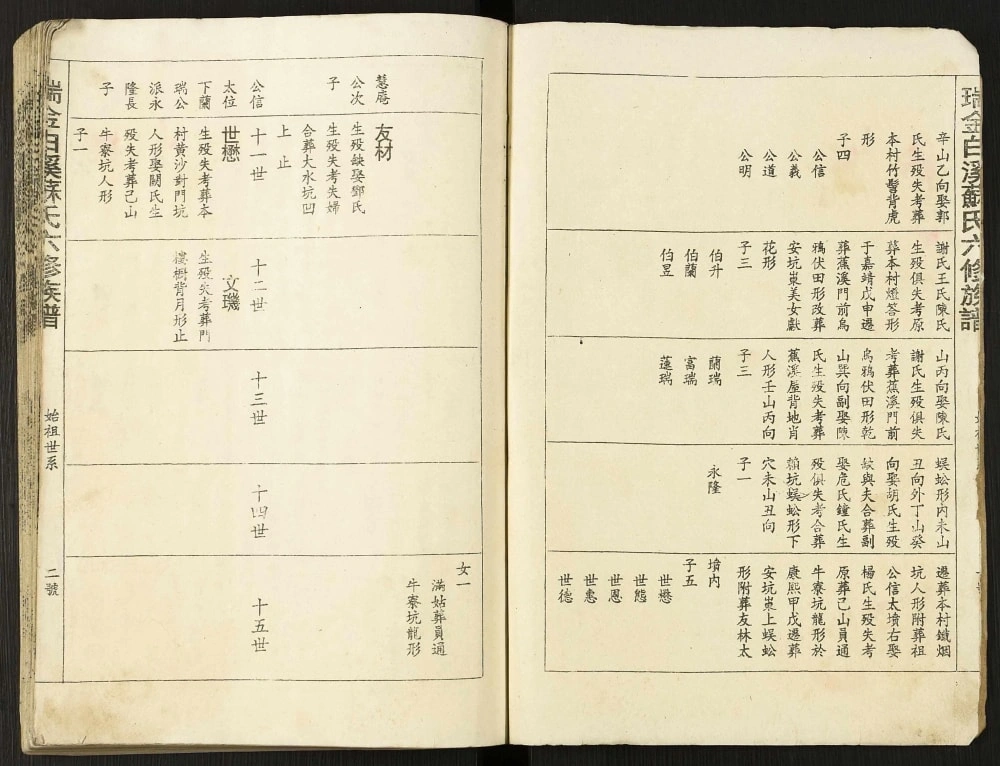 瑞金白溪蘇氏六修族譜
辛山乙向娶郭
氏生歿失考葬
本村竹髻背虎
形
子四
公信
公義
公道
公明
謝氏王氏陳氏
生歿俱失考原
葬本村燈答形
于嘉靖戊申遷
葬蕉溪門前烏
鴉伏田形改葬
安坑㟂美女獻
花形
子三
伯升
伯蘭
伯昱
山丙向娶陳氏
謝氏生歿俱失
考葬蕉溪門前
烏鴉伏田形乾
山巽向副娶陳
氏生歿失考葬
蕉溪屋背地肖
人形壬山丙向
子三
蘭瑞
富瑞
蓮瑞
蜈蚣形內未山
丑向外丁山癸
向娶胡氏生歿
缺與夫合葬副
娶危氏鐘氏生
歿俱失考合葬
賴坑蜈蚣形下
穴未山丑向
子一
永隆
遷葬本村鐵烟
坑人形附葬祖
公信太墳右娶
楊氏生歿失考
原葬己山員通
牛寮坑龍形於
康熙甲戊遷葬
安坑㟂上蜈蚣
形附葬友林太
墳內
子五
世懋
世態
世恩
世惠
世德
慧庵
公次
子
友材
生歿缺娶鄧氏
生歿失考失婦
合葬大水坑凹
上止
女一
滿姑葬員通
牛寮坑龍形
公信
十一世
十二世
十三世
十四世
十五世
太位
下蘭
瑞公
派永
隆長
子
世懋
生歿失考葬本
村黃沙對門坑
人形娶關氏生
歿失考葬己山
牛寮坑人形
子一
文璣
生歿失考葬門
樓樹背月形止
瑞金白溪蘇氏六修族譜
始祖世系
二號